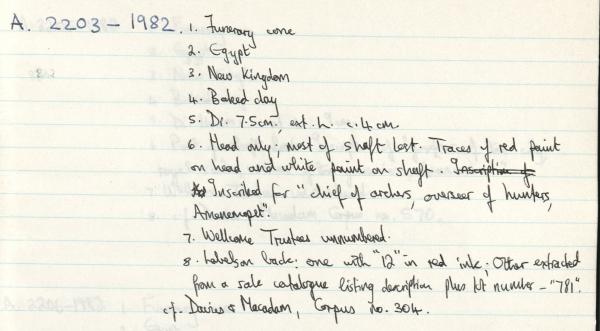 A. 2203 – 1982. 1. Funerary cone
2. Egypt
3. New Kingdom
4. Baked clay
5. D. 7.5cm, ext. L. c. 4 cm.
6. Head only; most of shaft lost. Traces of red paint
on head and white paint on shaft. Inscription of
Inscribed for "chief of archers, overseer of hunters,
Amenemopet".
7. Wellcome Trustees unnumbered.
8. Labels on back: one with "12" in red ink; Other extracted
from a sale catalogue listing description plus lot number – "781".
cf. Davies & Macadam, Corpus no. 304.